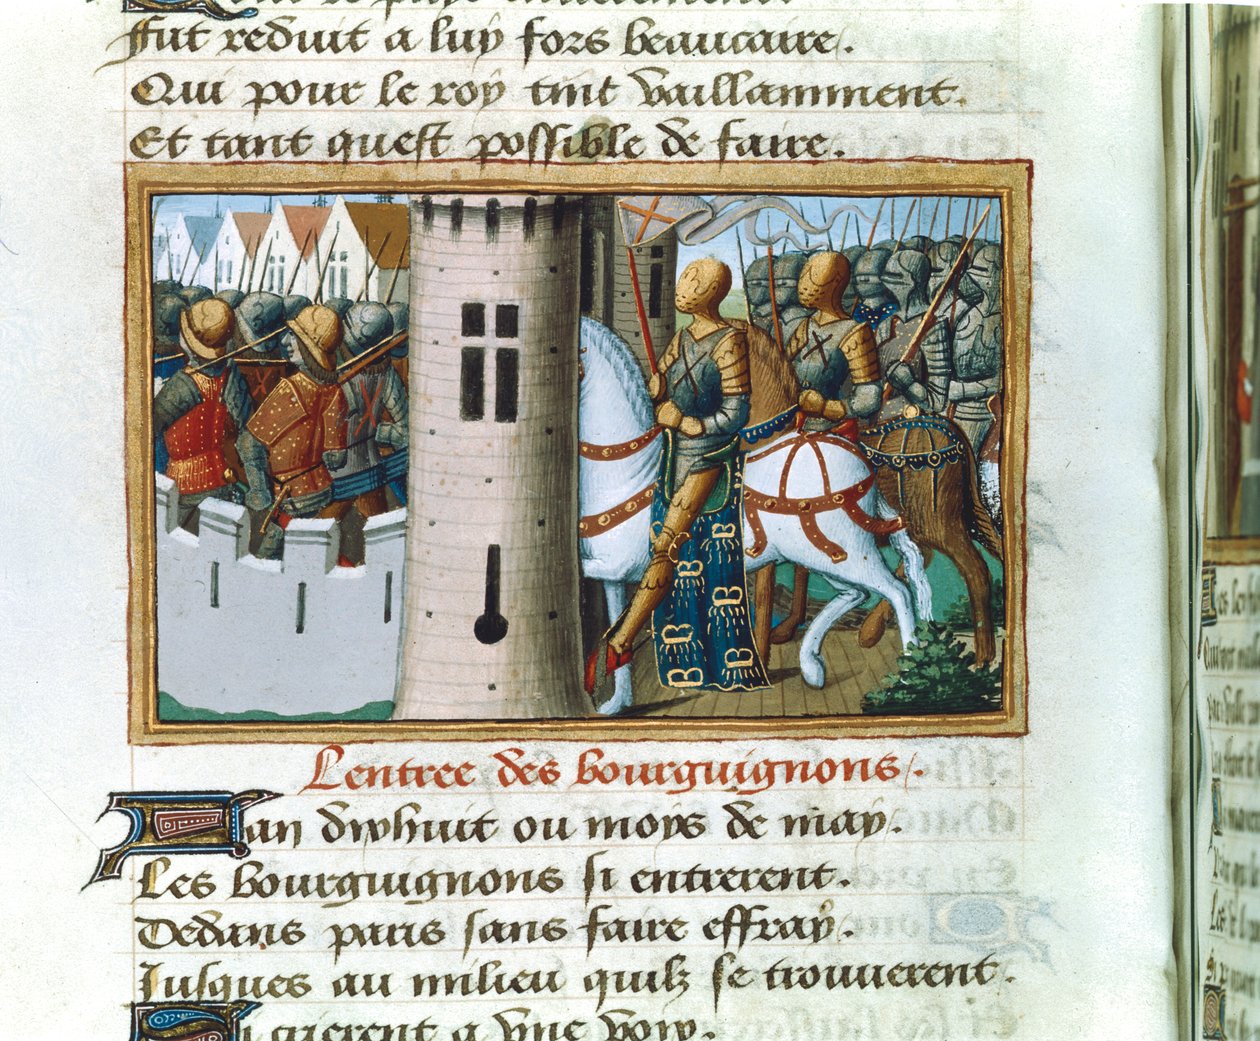 fut reduit a luy fors beaucaire.
Qui pour le roy tint vaillamment.
Et tant quest possible de faire.
B B
B B
B B
B B
Lentree des bourguignons.
Lan dixhuit ou moys de may.
Les bourguignons si entrerent.
Dedans paris sans faire effray.
Jusques au milieu quilz se trouuerent.
Si crierent a vne voix.